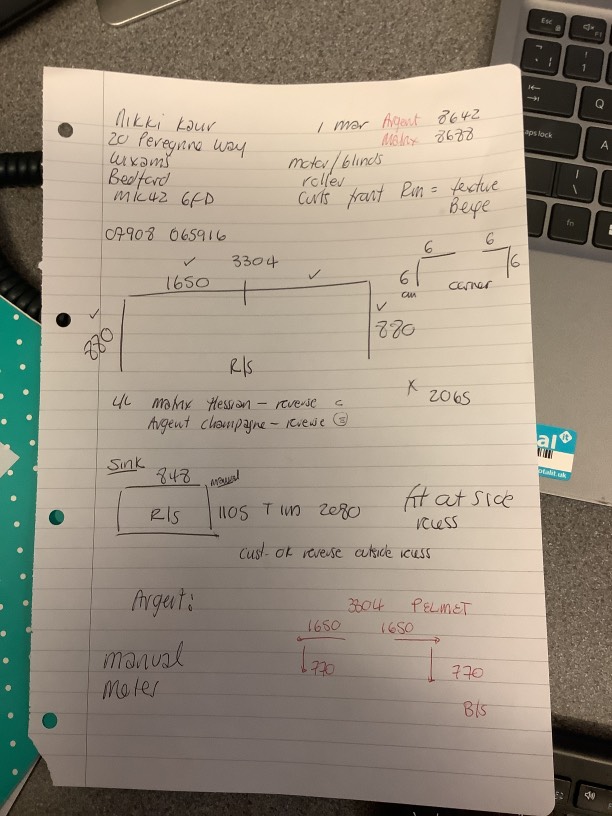 Nikki Kaur
20 Peregrine Way
Wixams
Bedford
MK42 6FD
07908 065916
1 mar Argent 8642
Matrix 8688
motor/blinds
roller
Curts front Rm = texture
Beige
6 6
6 6
cm corner
3304
1650
880
880
R/s
x 2065
4/c Matrix Hessian - reverse
Argent champagne - reverse
Sink
848 manual
R/s 1105 T 2080
fit at side
recess
Cust - OK reverse outside recess
Argent:
3304 PELMET
1650 1650
770 770
manual
Meter
B/s
Esc
caps lock
Q
A
fn
al it
totalit.uk